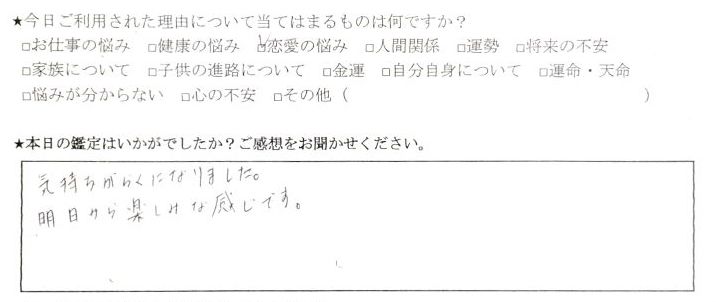 ★今日ご利用された理由について当てはまるものは何ですか？
□お仕事の悩み □健康の悩み ☑恋愛の悩み □人間関係 □運勢 □将来の不安
□家族について □子供の進路について □金運 □自分自身について □運命・天命
□悩みが分からない □心の不安 □その他（ ）
★本日の鑑定はいかがでしたか？ご感想をお聞かせください。
気持ちがらくになりました。
明日から楽しみな感じです。